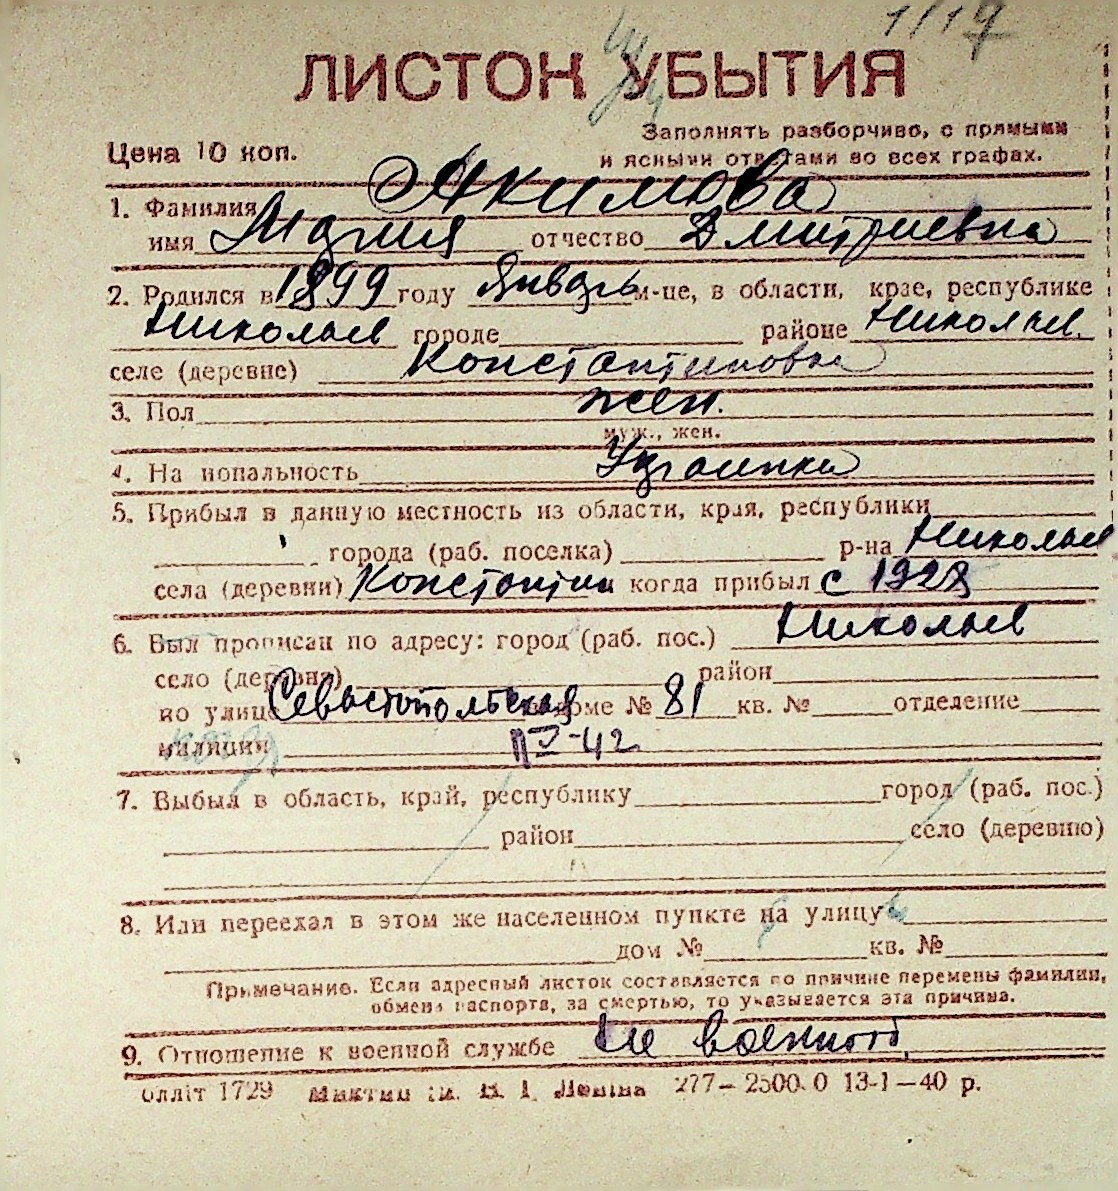 1/17
ЛИСТОК УБЫТИЯ
Заполнять разборчиво, с прямыми
Цена 10 коп. и ясными ответами во всех графах.
1. Фамилия Якимова
имя Мария отчество Дмитриевна
2. Родился в 1899 году Январь м-це, в области, крае, республике
Николаев городе районе Николаев.
селе (деревне) Константиновка
3. Пол жен.
муж., жен.
4. Национальность Украинка
5. Прибыл в данную местность из области, края, республики
города (раб. поселка) р-на Николаев
села (деревни) Константин когда прибыл с 1928
6. Был прописан по адресу: город (раб. пос.) Николаев
село (деревня) район
по улице Севастопольская доме № 81 кв. № отделение
милиции IV-42
7. Выбыл в область, край, республику город (раб. пос.)
район село (деревню)
8. Или переехал в этом же населенном пункте на улицу
дом № кв. №
Примечание. Если адресный листок составляется по причине перемены фамилии,
обмена паспорта, за смертью, то указывается эта причина.
9. Отношение к военной службе не военнооб.
олліт 1729 ім. В. І. Леніна 277—2500.0 13-1—40 р.